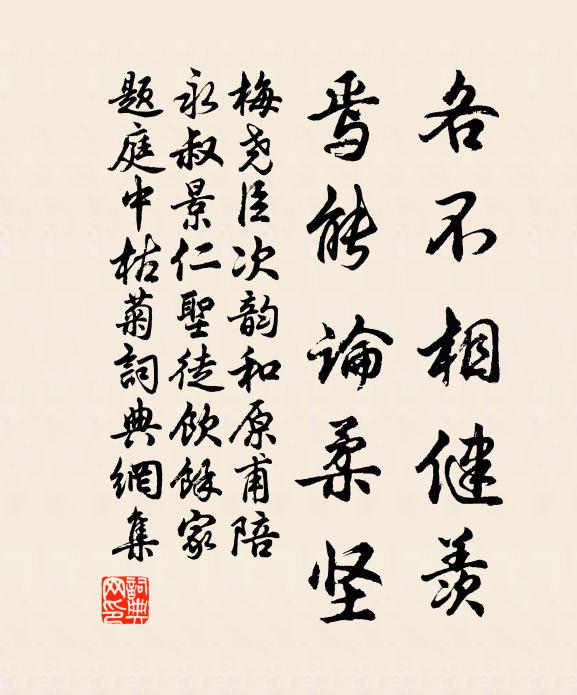 各不相健羡
焉能論柔坚
梅尧臣次韵和原甫陪
永叔景仁聖徒飲餘家
题庭中枯菊詞典網集
詞典
网印